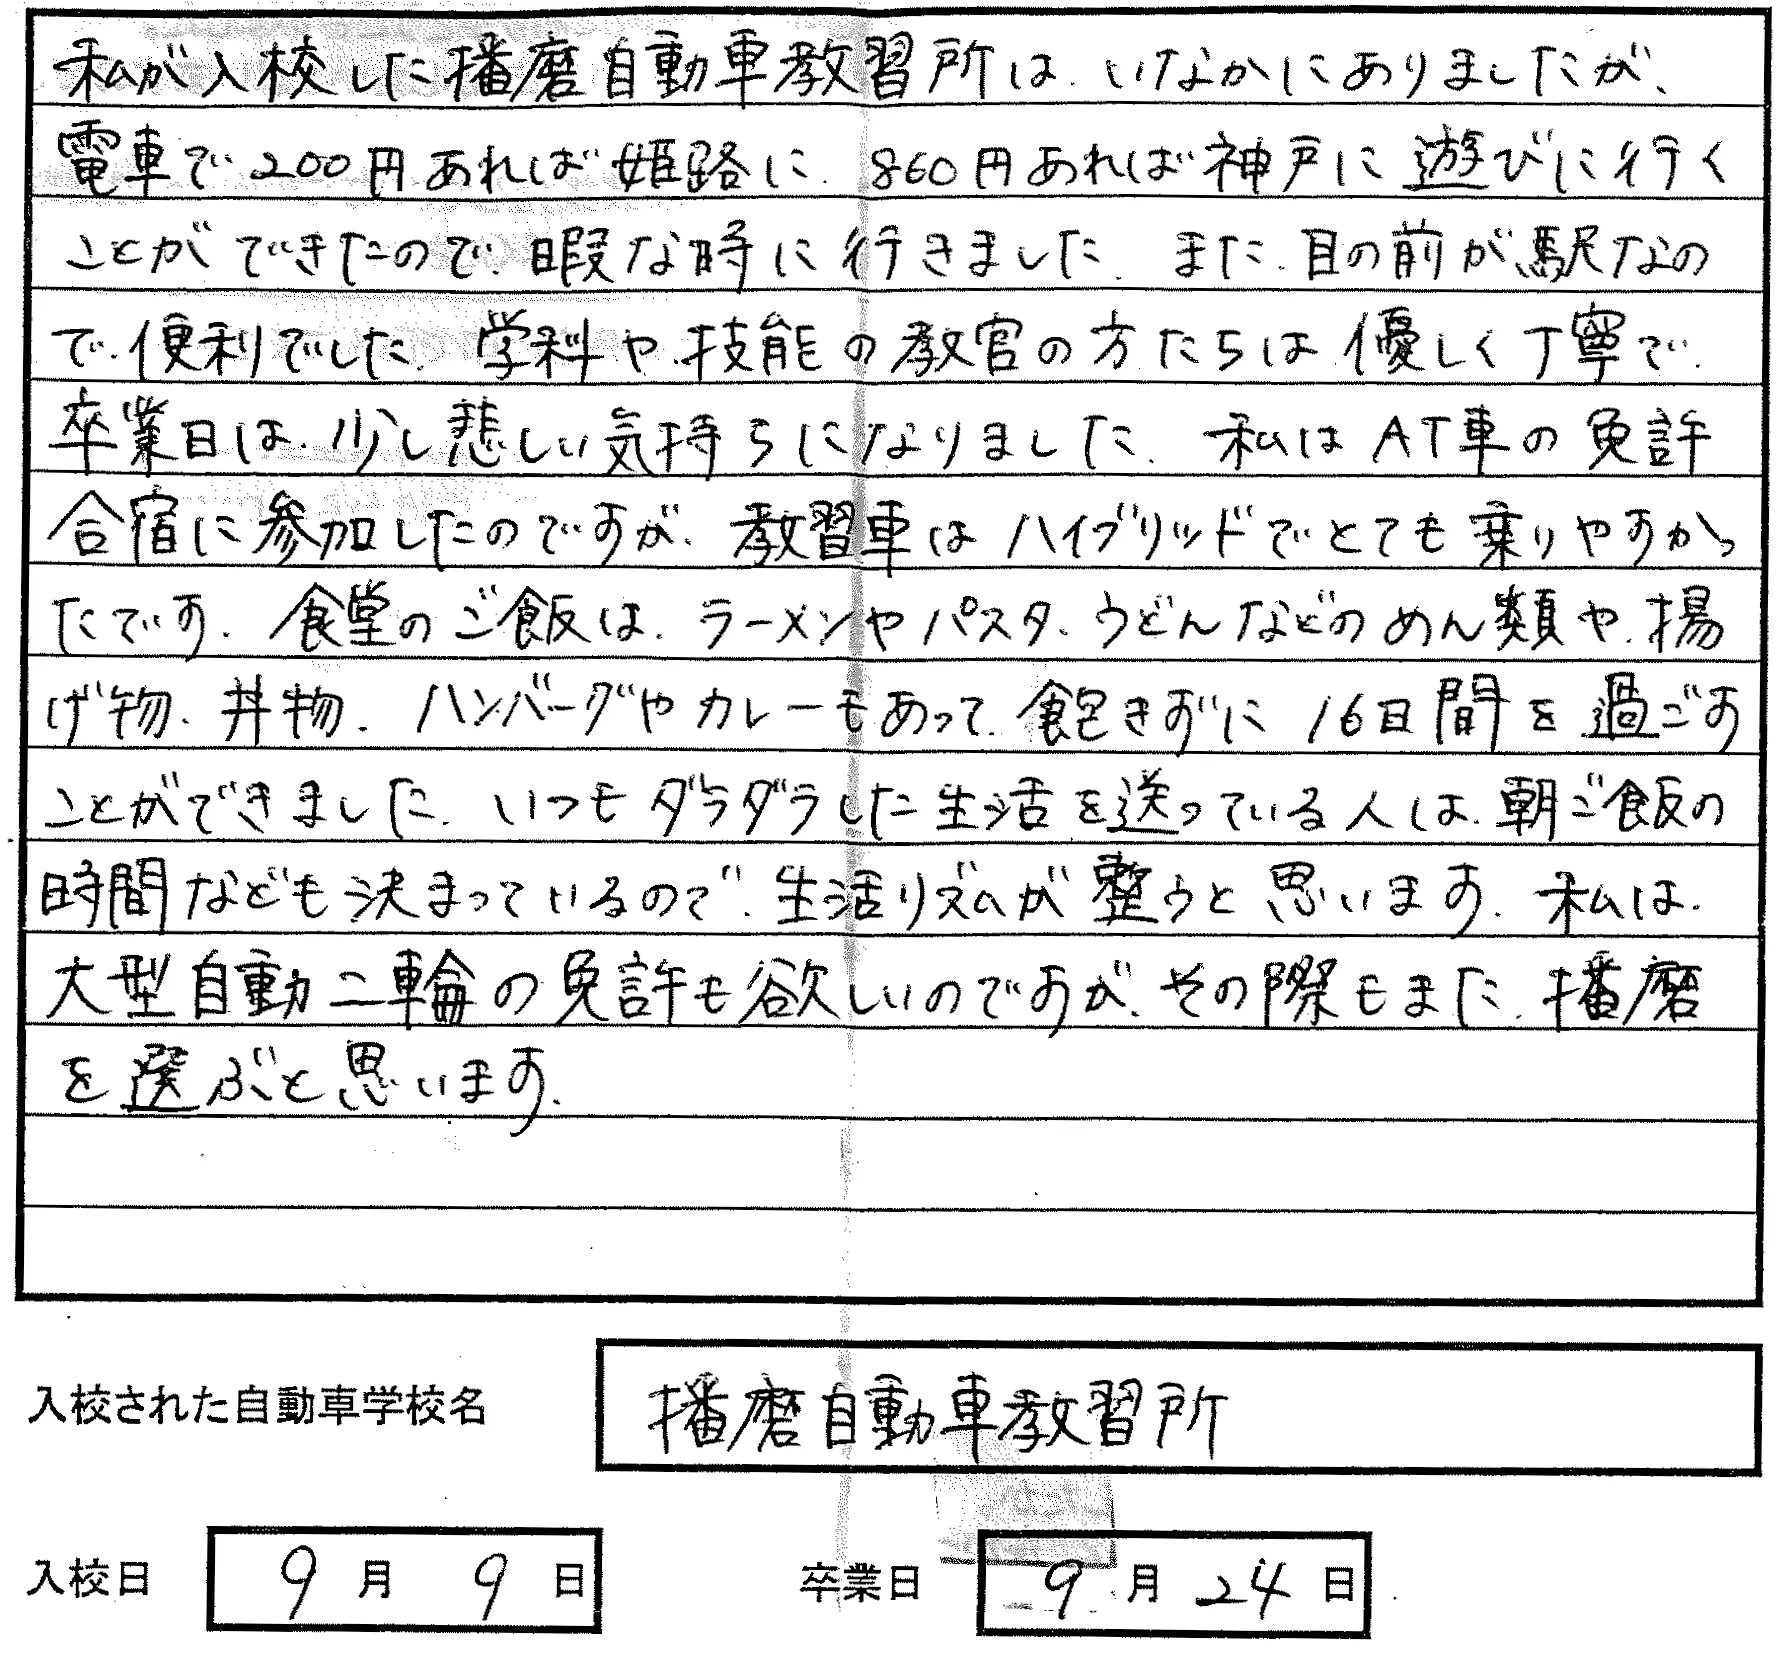 私が入校した播磨自動車教習所は、いなかにありましたが、
電車で200円あれば姫路に、860円あれば神戸に遊びに行く
ことができたので、暇な時に行きました。また、目の前が駅なの
で、便利でした。学科や、技能の教官の方たちは優しく丁寧で、
卒業日は、少し悲しい気持ちになりました。私はAT車の免許
合宿に参加したのですが、教習車はハイブリッドでとても乗りやすかっ
たです。食堂のご飯は、ラーメンやパスタ、うどんなどのめん類や、揚
げ物、丼物、ハンバーグやカレーもあって、飽きずに16日間を過ごす
ことができました。いつもダラダラした生活を送っている人は、朝ご飯の
時間なども決まっているので、生活リズムが整うと思います。私は、
大型自動二輪の免許も欲しいのですが、その際もまた、播磨
を選ぶと思います。
入校された自動車学校名 播磨自動車教習所
入校日 9月9日 卒業日 9月24日